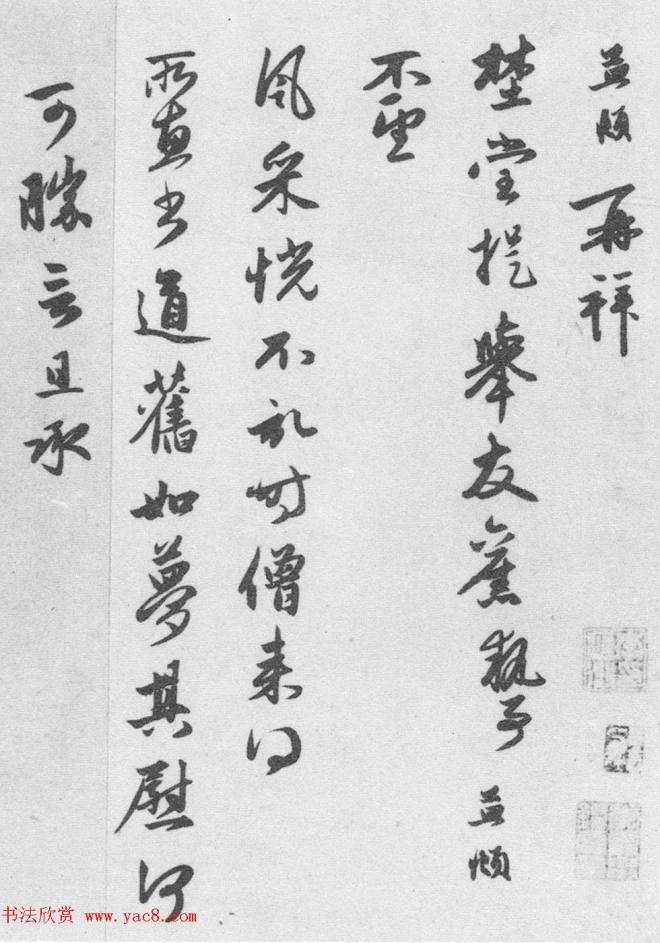 孟頫再拜
埜堂提舉友舊執事孟頫
不望
風采恍不記時僧來得
所惠書道舊如夢其慰何
可勝言且承
书法欣赏 www.yac8.com